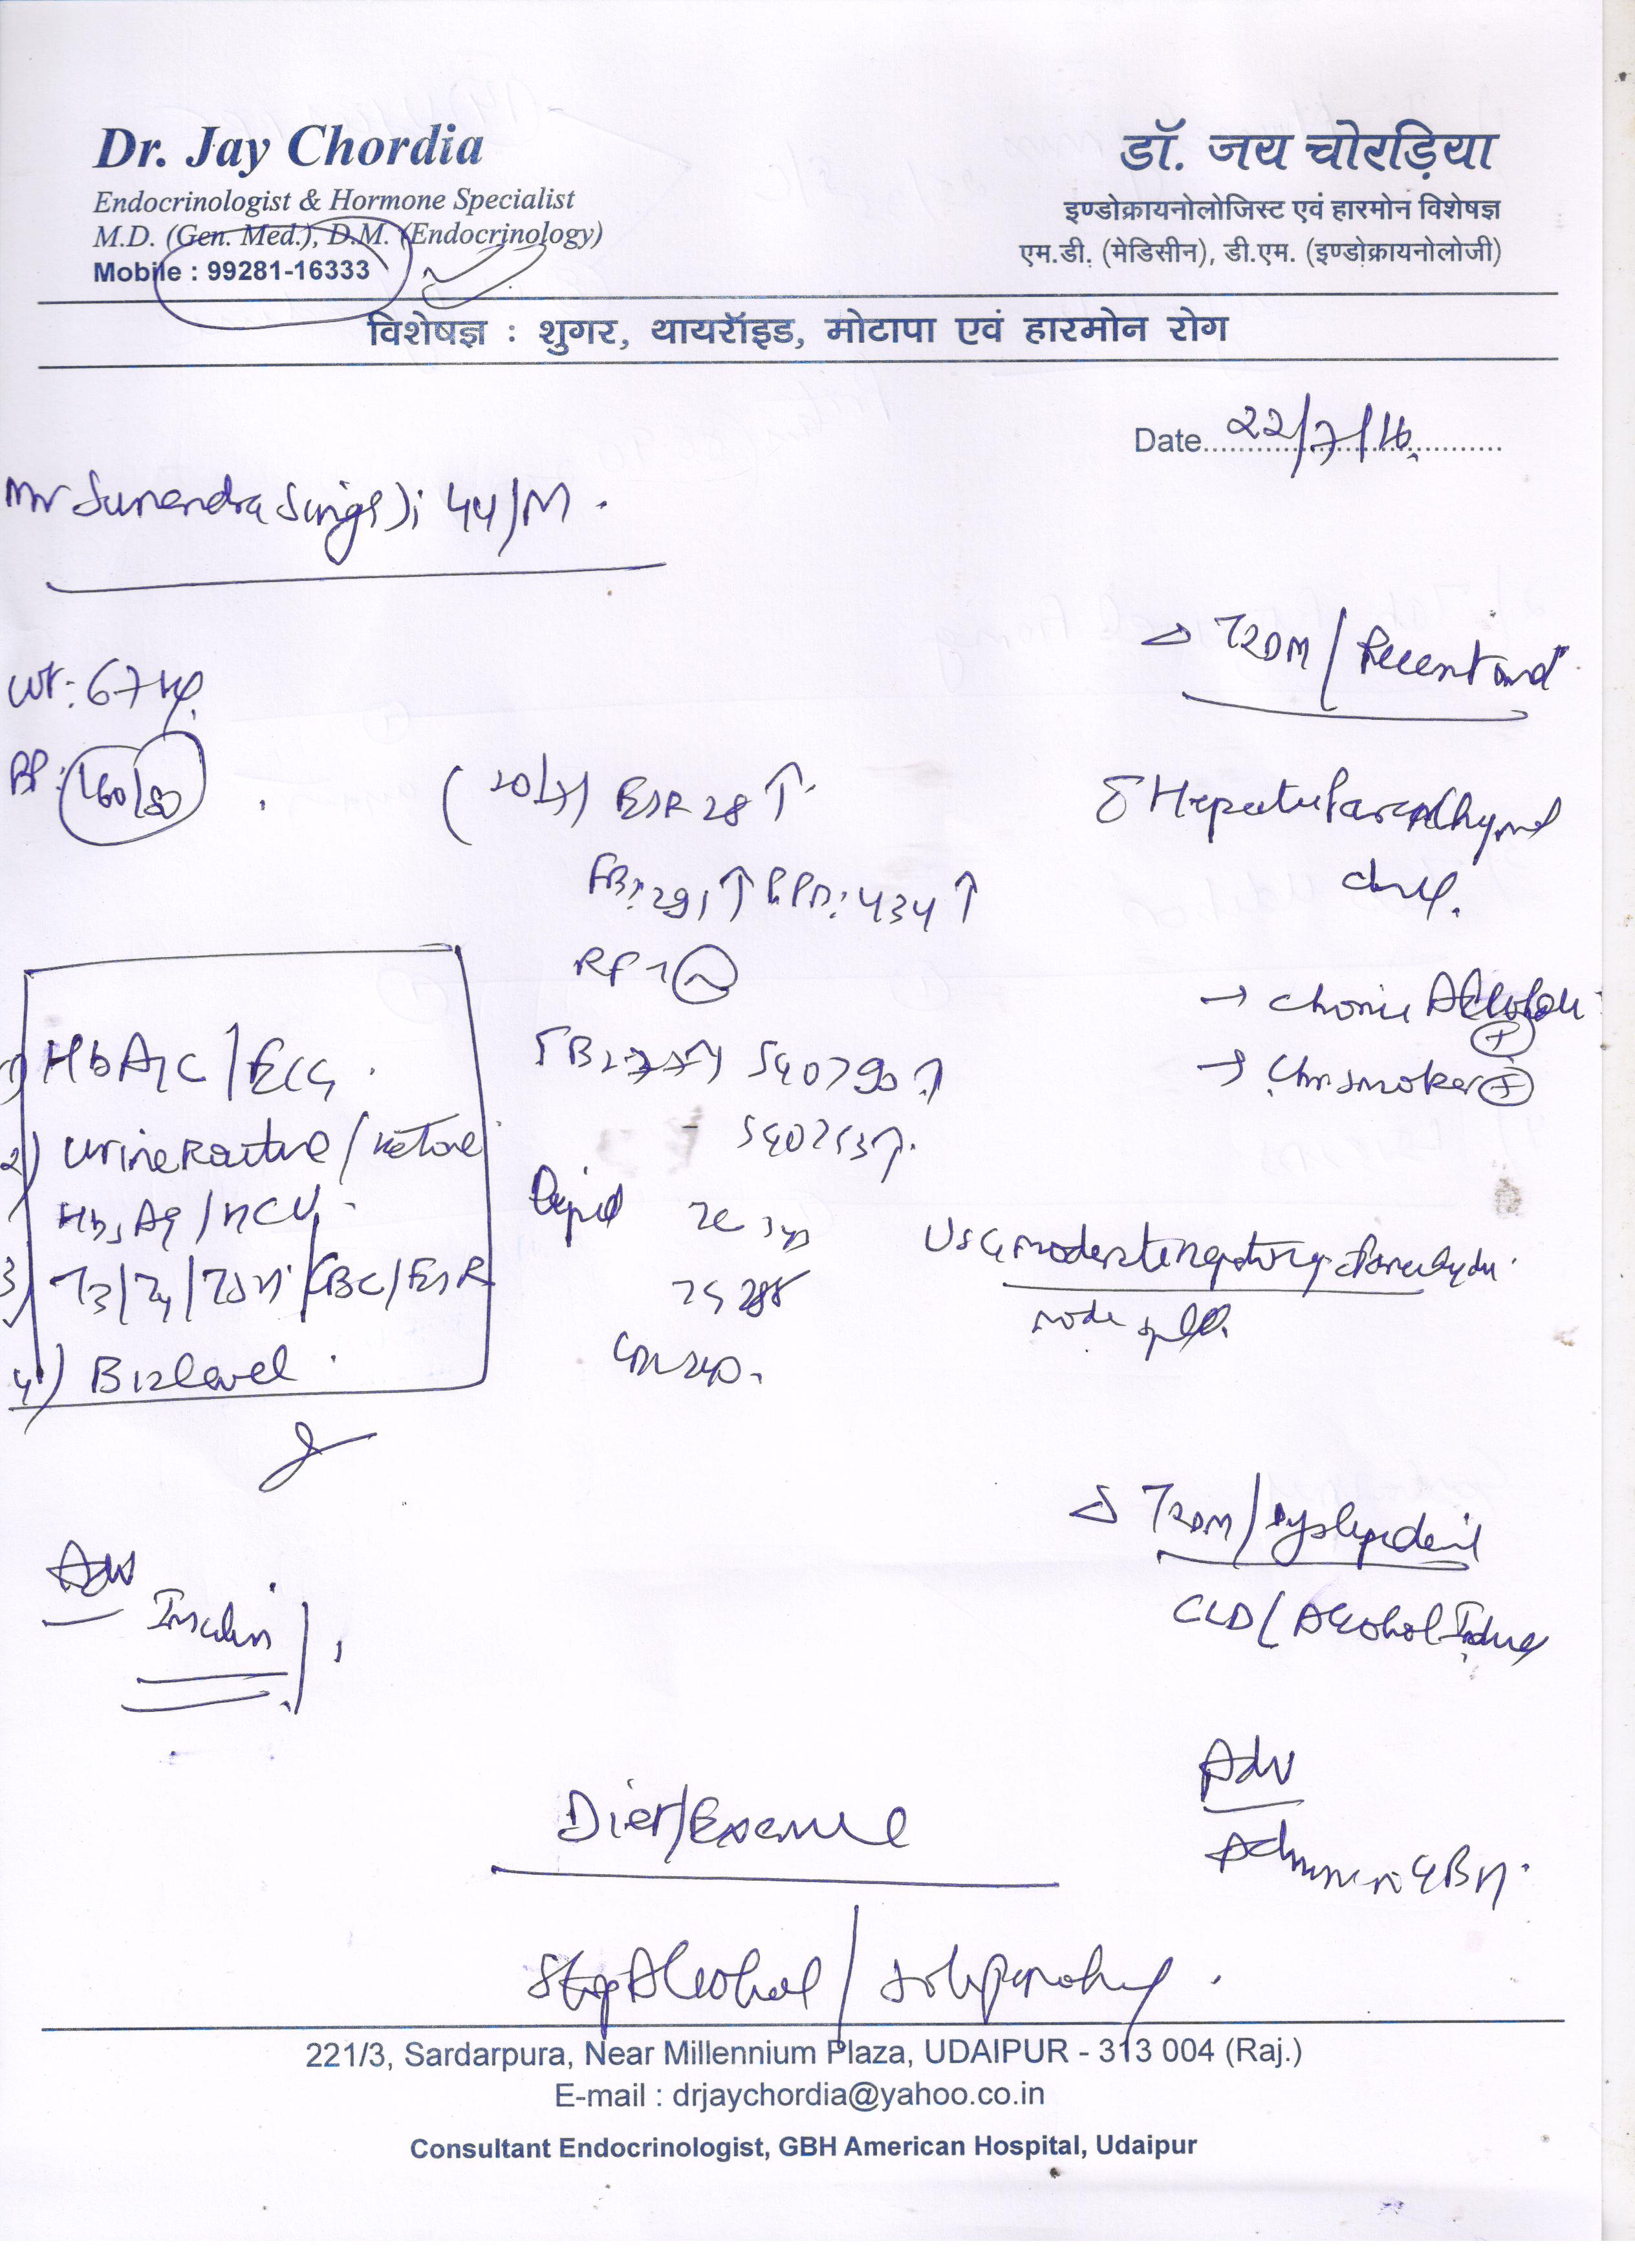 Dr. Jay Chordia
Endocrinologist & Hormone Specialist
M.D. (Gen. Med.), D.M. (Endocrinology)
Mobile : 99281-16333
डॉ. जय चोरड़िया
इण्डोक्रायनोलोजिस्ट एवं हारमोन विशेषज्ञ
एम.डी. (मेडिसीन), डी.एम. (इण्डोक्रायनोलोजी)
विशेषज्ञ : शुगर, थायरॉइड, मोटापा एवं हारमोन रोग
Date 22/7/16
Mr Surendra Singh Ji 44/M.
Δ T2DM / Recent
Wt: 67 kg.
BP: 160/80
(20/7) ESR 28 ↑
FBS: 291 ↑ PPBS: 434 ↑
RFT
SGOT 90 ↑
Lipid TC
TG 288
→ Chronic Alcoholic +
→ Chr smoker +
USG moderate
1) HbA1C / ECG.
2) Urine Routine / Ketone
HbsAg / HCV
3) T3/T4/TSH / CBC/ESR
4) B12 level.
Δ T2DM / Dyslipidemia
CLD / Alcohol Induced
Adv
Insulin
Adv
Admission GBH.
Diet/Exercise
Stop Alcohol /
221/3, Sardarpura, Near Millennium Plaza, UDAIPUR - 313 004 (Raj.)
E-mail : drjaychordia@yahoo.co.in
Consultant Endocrinologist, GBH American Hospital, Udaipur